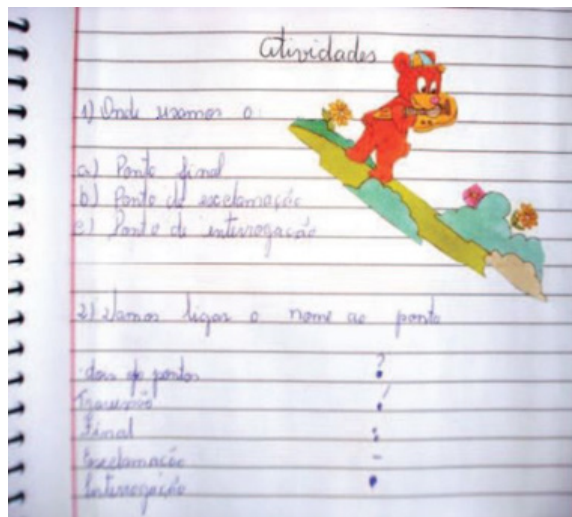 Atividades
1) Onde usamos o:
a) Ponto final
b) Ponto de exclamação
c) Ponto de interrogação
2) Vamos ligar o nome ao ponto
dois pontos ?
Travessão !
Final :
Exclamação -
Interrogação .